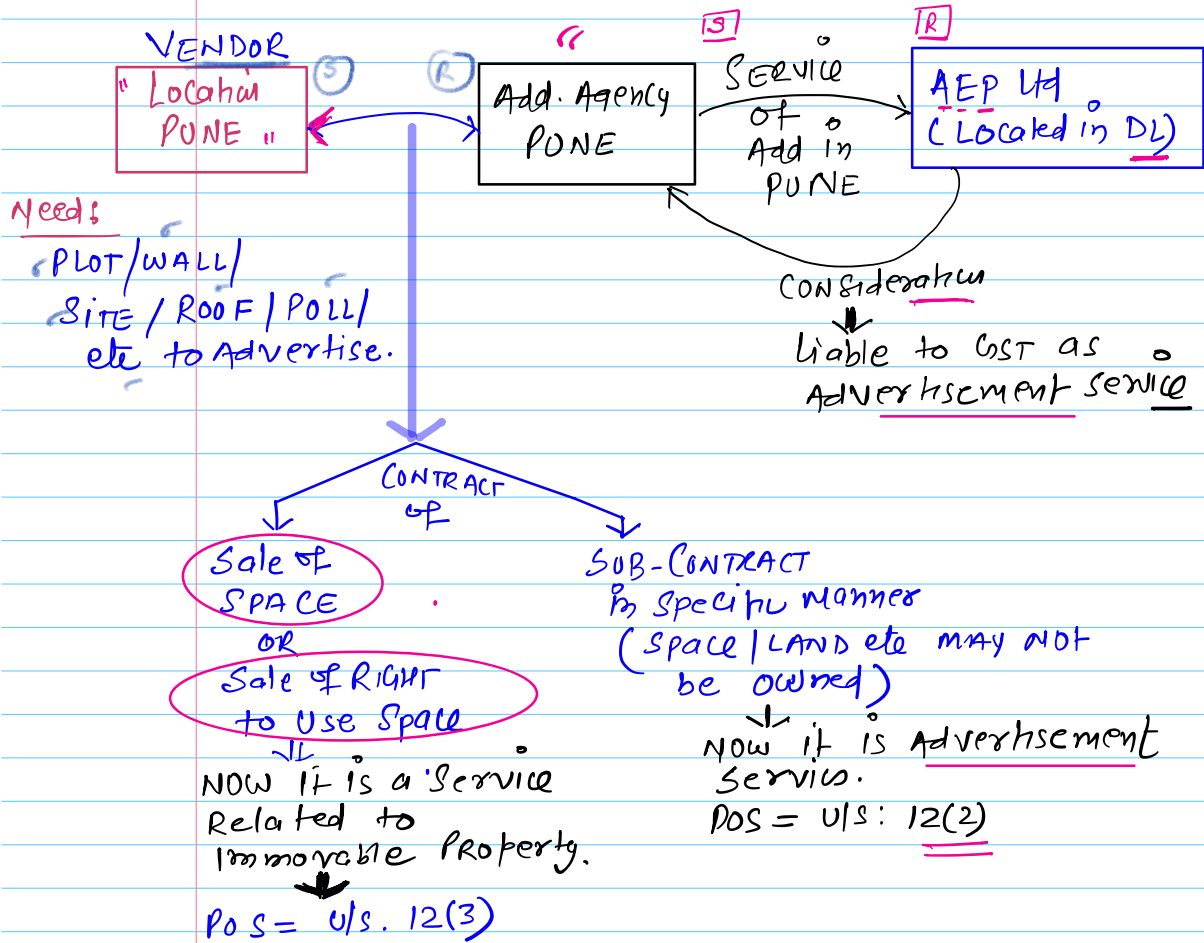 VENDOR
"Location
PUNE"
S
R
Add. Agency
PUNE
S
SERVICE
of
Add in
PUNE
R
AEP Ltd
(Located in DL)
Need:
PLOT/WALL/
SITE / ROOF / POLL/
etc to Advertise.
Consideration
Liable to GST as
Advertisement Service
CONTRACT
of
Sale of
SPACE
OR
Sale of RIGHT
to Use Space
NOW it is a Service
Related to
Immovable Property.
POS = U/S. 12(3)
SUB-CONTRACT
in Specific Manner
(Space / LAND etc MAY NOT
be owned)
NOW it is Advertisement
Services.
POS = U/S: 12(2)